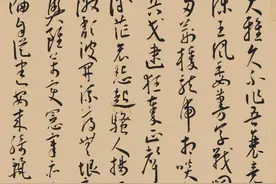 大雅久不作吾衰竟
陳王風委蔓草戰國
多荊榛龍虎相啖
兵戈逮狂秦正聲
微茫哀怨起騷人揚
激頹波開流蕩無垠
興雖萬變憲章亦
淪自從建安來綺麗